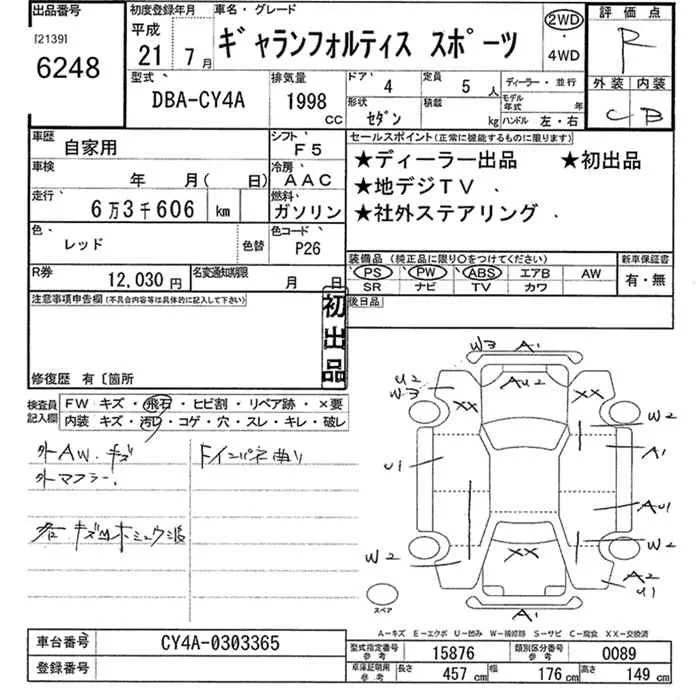 出品番号
[2139]
6248
初度登録年月
平成
21 7月
車名・グレード
ギャランフォルティス スポーツ
2WD
・
4WD
評価点
R
外装 内装
C B
型式
DBA-CY4A
排気量
1998 CC
ドア 4
定員 5 人
形状 セダン
積載 kg
ディーラー・並行
モデル年式 年
ハンドル 左・右
車歴 自家用
シフト F5
車検 年 月( 日)
冷房 AAC
走行 6万3千606 km
燃料 ガソリン
色 レッド 色替
色コード P26
R券 12,030円
名変通知期限 月 日
セールスポイント(正常に機能するものに限ります)
★ディーラー出品 ★初出品
★地デジTV
★社外ステアリング
装備品 (純正品に限り○をつけてください)
PS PW ABS エアB AW
SR ナビ TV カワ
新車保証書
有・無
注意事項申告欄(不具合内容等は具体的に記入して下さい)
初出品
後日品
修復歴 有〔箇所
検査員記入欄
FW キズ・飛石・ヒビ割・リペア跡・×要
内装 キズ・汚れ・コゲ・穴・スレ・キレ・破レ
外AW.キズ
外マフラー.
Fインパネ曲り
W3 A1
U2
W3
XX
AU2
XX
W2
A1
U1
AU1
W2
XX
W2
A2
U1
A1
スペア
A-キズ E-エクボ U-凹み W-補修跡 S-サビ C-腐食 XX-交換済
車台番号 CY4A-0303365
登録番号
型式指定番号 参考 15876
類別区分番号 参考 0089
車庫証明用 参考 長さ 457 cm 幅 176 cm 高さ 149 cm